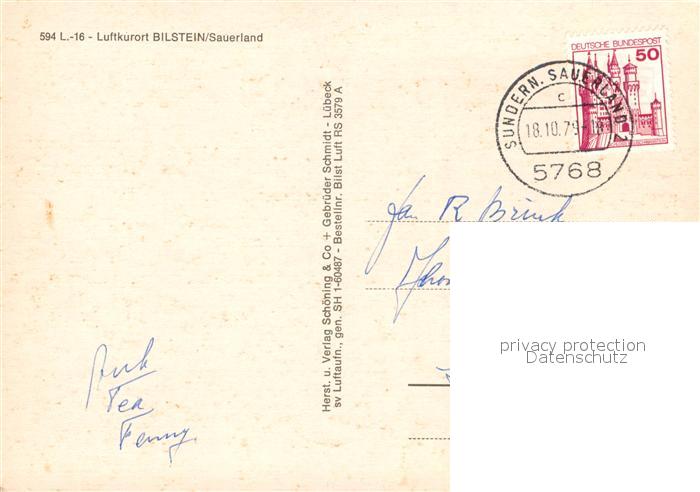 594 L.-16 - Luftkurort BILSTEIN/Sauerland
DEUTSCHE BUNDESPOST
50
SUNDERN, SAUERLAND 2
c
18.10.79
5768
Herst. u. Verlag Schöning & Co + Gebrüder Schmidt - Lübeck
sv Luftaufn., gen. SH 1-60487 - Bestellnr. Bilst Luft RS 3579 A
Jan R Brink
privacy protection
Datenschutz
Tea
Fenny